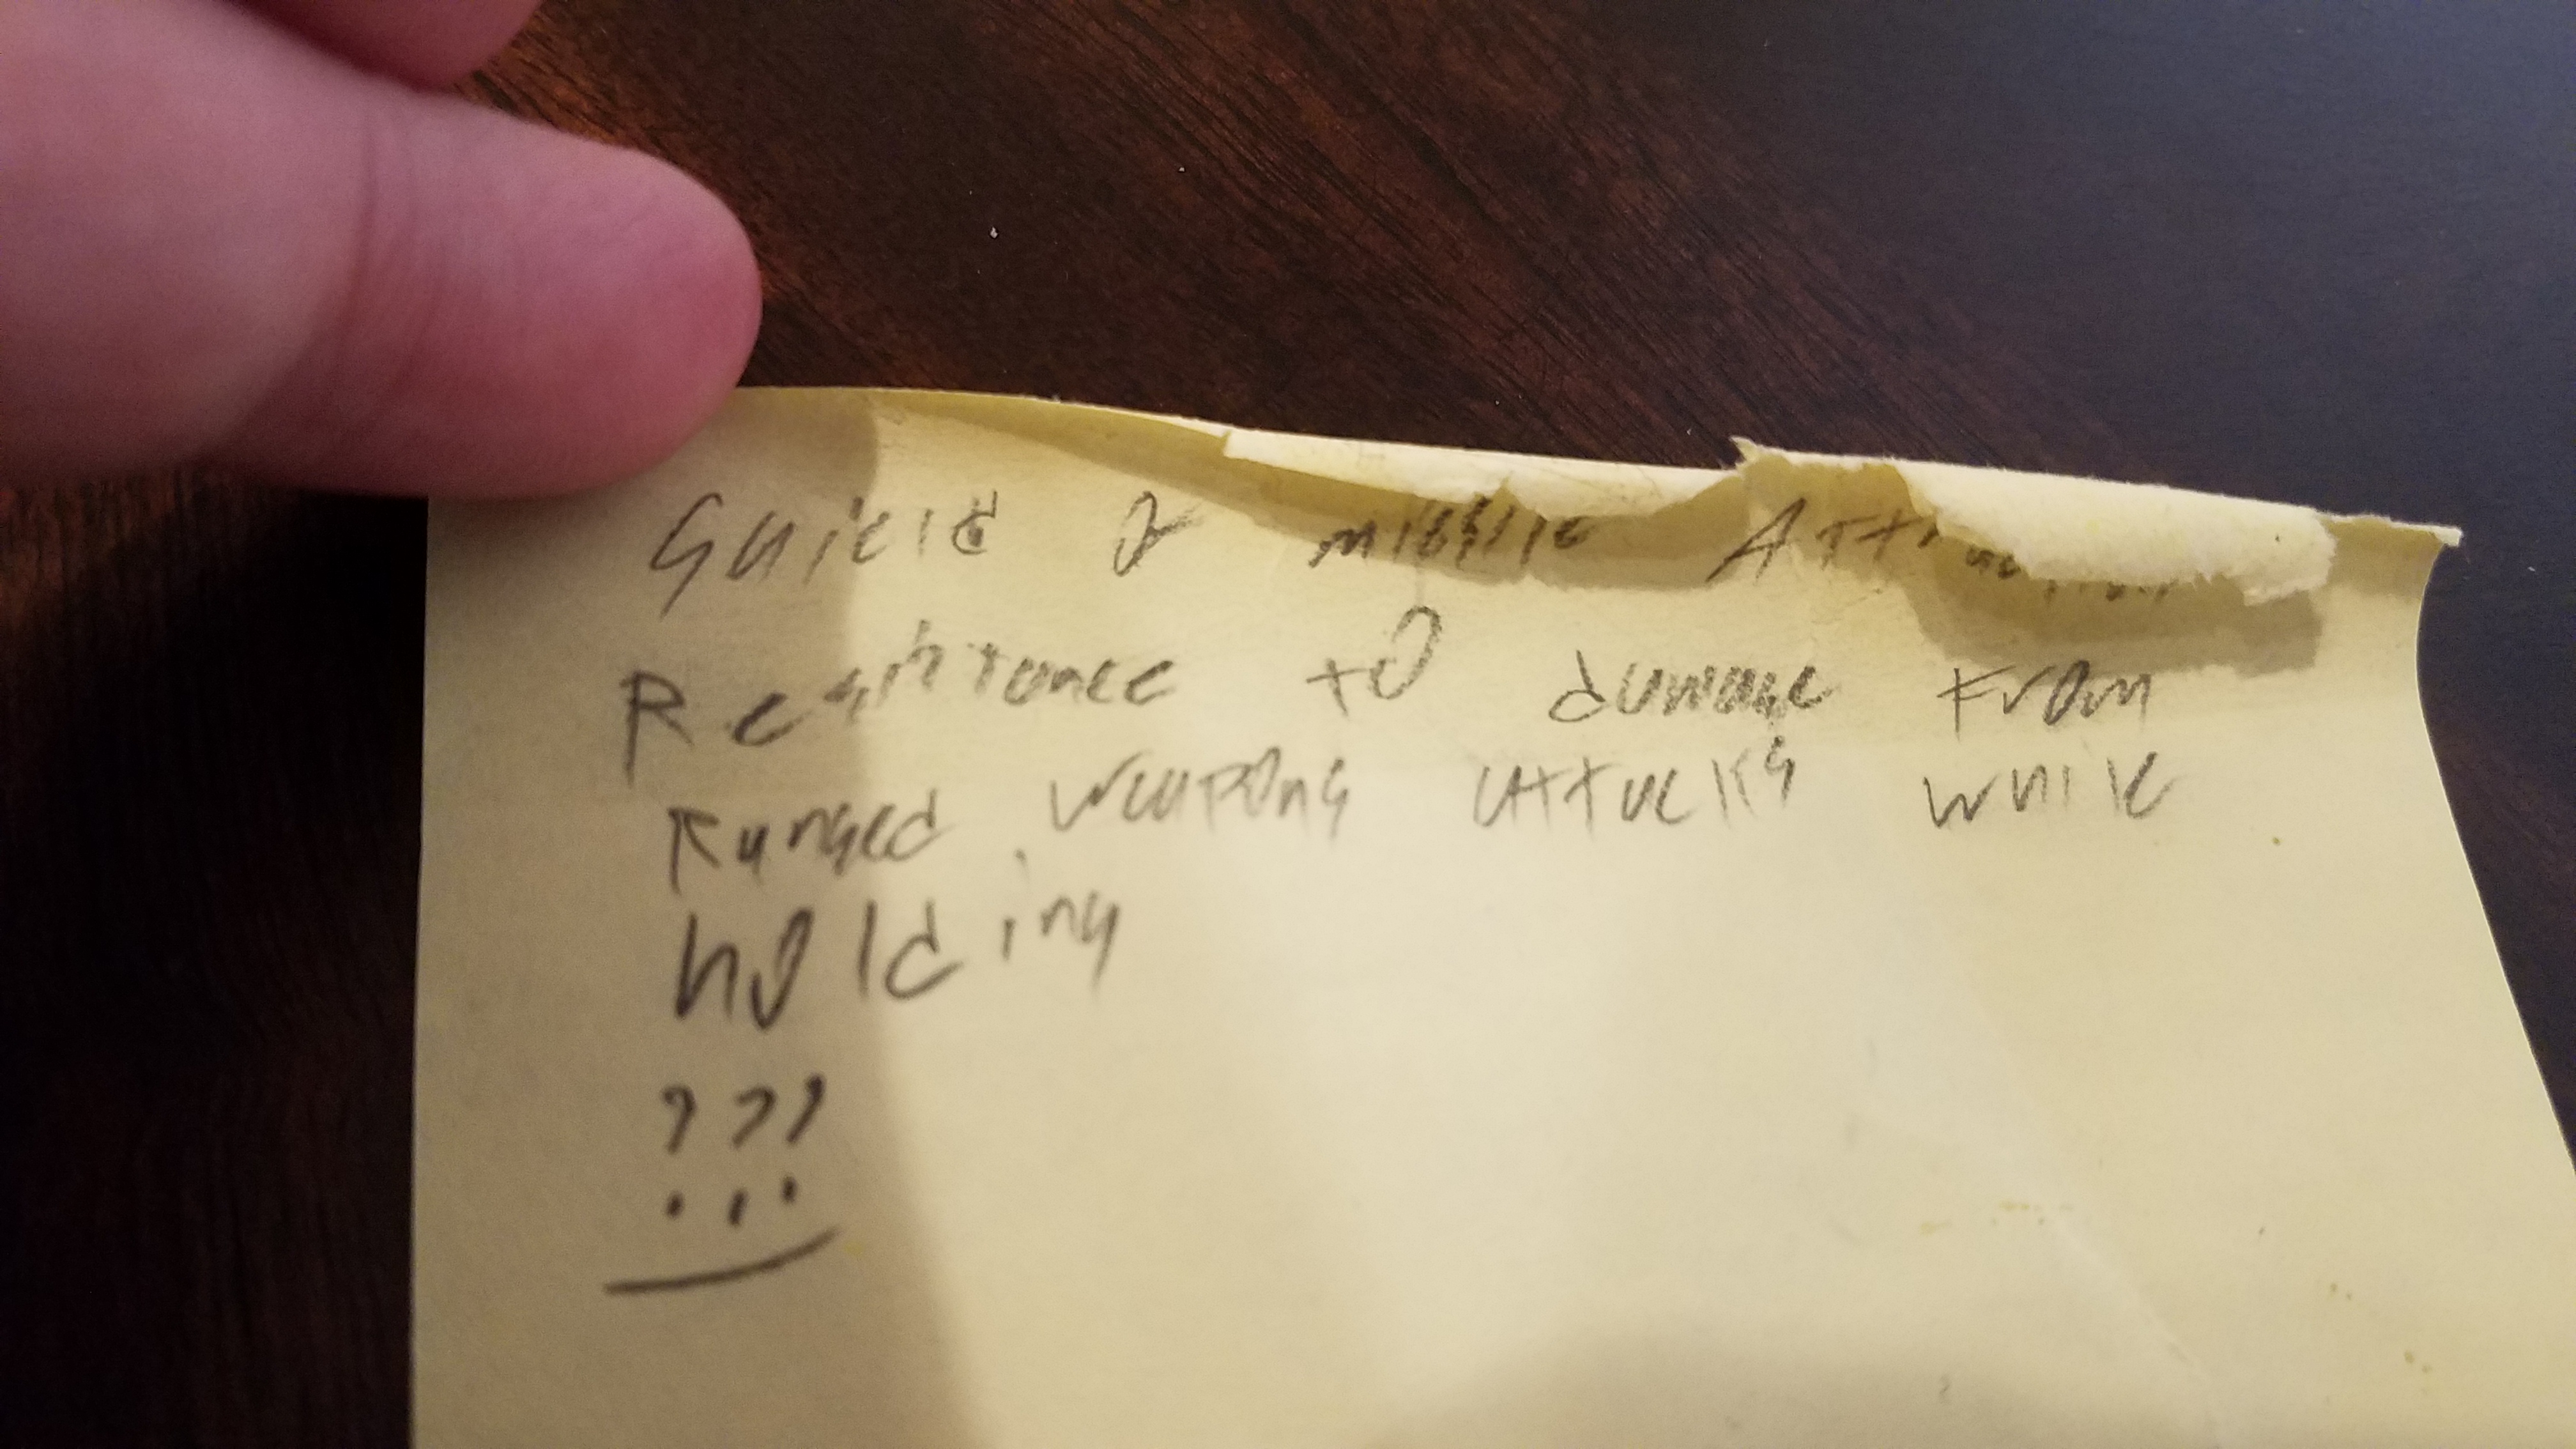 Shield of missile Attraction
Resistance to damage from
Ranged weapons attacks while
holding
???